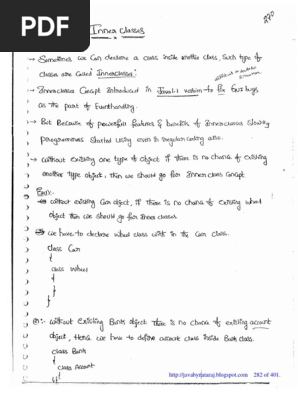 PDF
Inner classes
270
→ Sometimes we can declare a class inside another class, such type of
classes are called "Innerclasses".
→ Innerclasses Concept Introduced in Java 1.1 version to fix GUI bugs
as the part of Eventhandling.
→ But Because of powerful features & benefits of Innerclasses slowly
programmers started using even in regular coding also.
→ without existing one type of object if there is no chance of existing
another type object, then we should go for Innerclass concept.
Ex:-
without existing Car object, if there is no chance of existing wheel
object then we should go for inner classes
we have to declare wheel class with in the Car class.
class Car
{
class Wheel
{
}
}
②:- without Existing Bank object there is no chance of existing account
object, Hence we have to define account class inside Bank class.
class Bank
{
class Account
{
http://javabynataraj.blogspot.com 282 of 401.